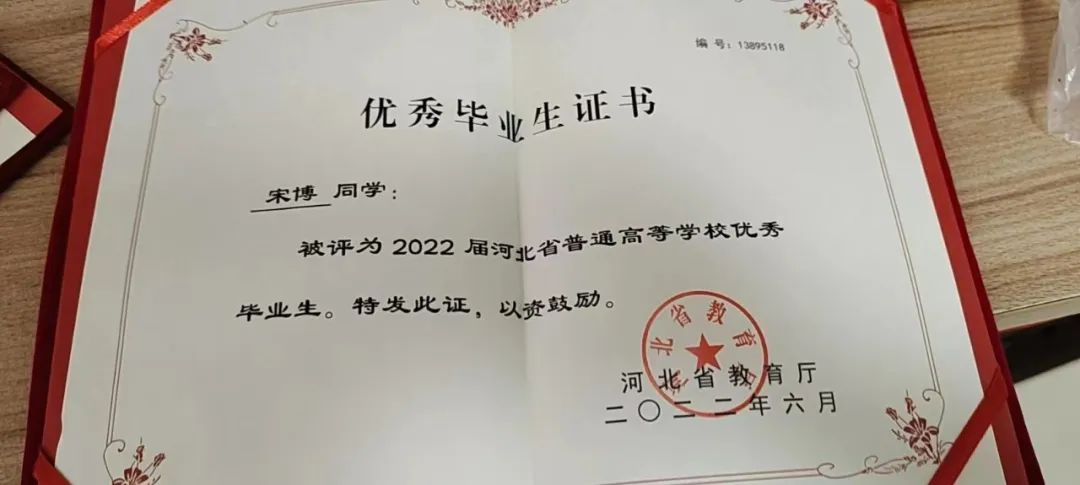 编号：13895118
优秀毕业生证书
宋博 同学：
被评为 2022 届河北省普通高等学校优秀
毕业生。特发此证，以资鼓励。
河北省教育厅
河北省教育厅
二〇二二年六月